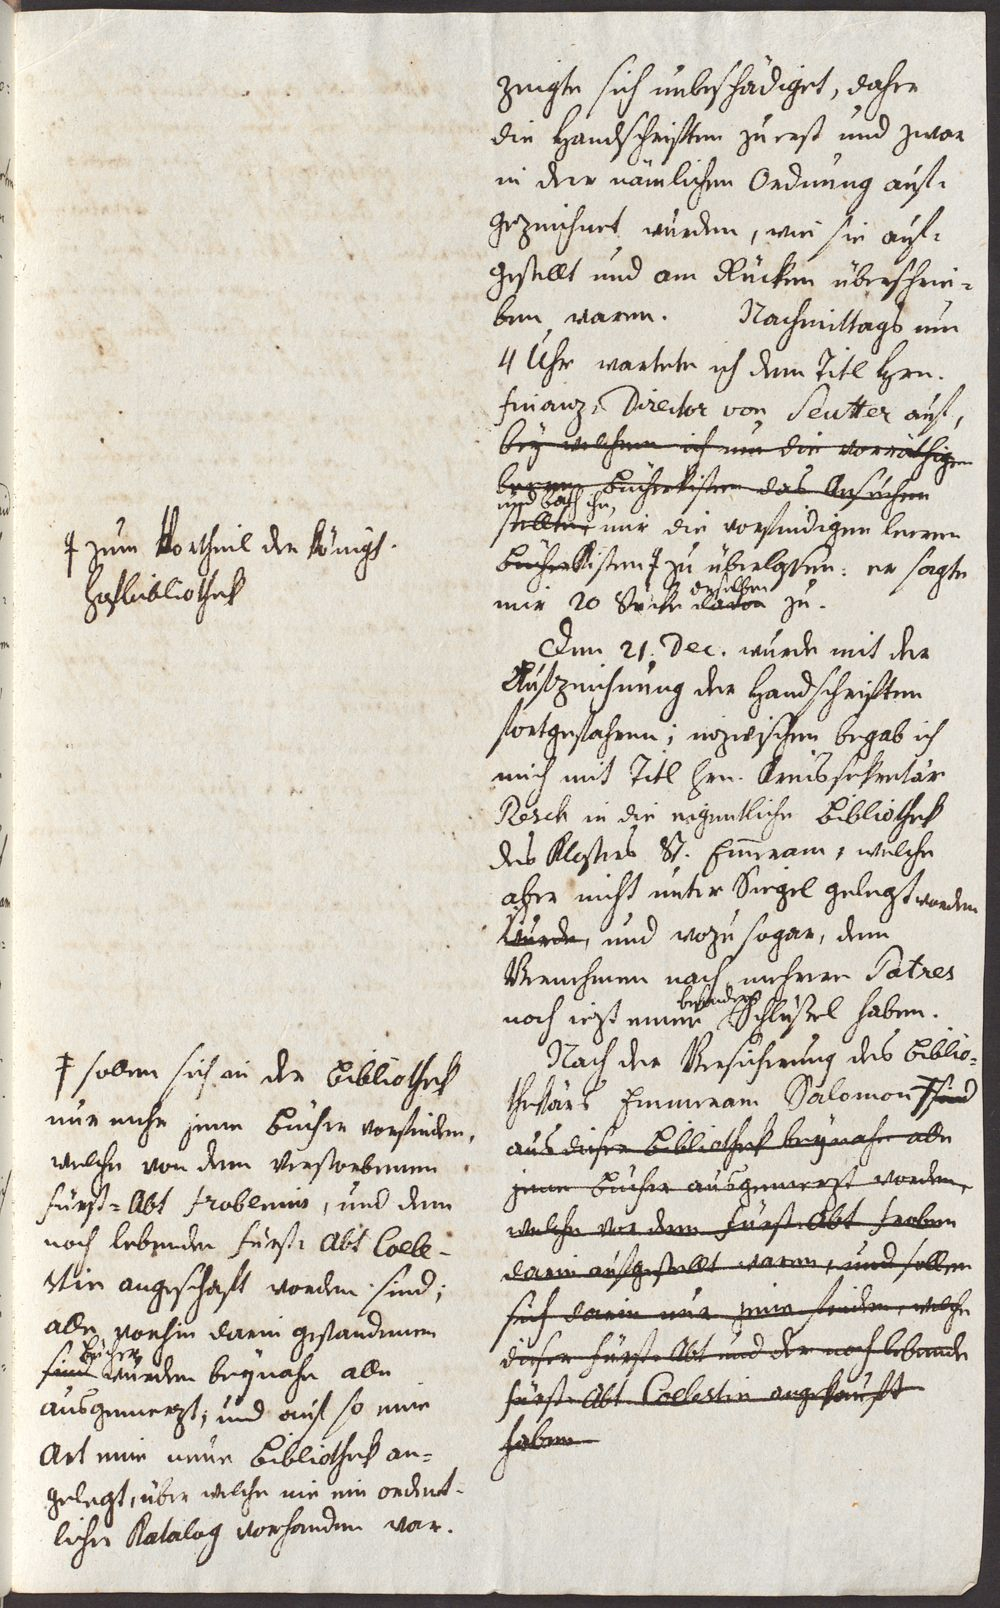 zeigte sich unbeschädiget, daher
die Handschriften zuerst und zwar
in der nämlichen Ordnung auf-
gezeichnet wurden, wie sie auf-
gestellt und am Rücken überschrie-
ben waren. Nachmittags um
4 Uhr wartete ich dem Titl Hrn.
Finanz-Director von Seutter auf,
bey welchem ich um die vorräthigen
leeren Bücherkisten das Ansuchen
und bath ihn,
stellte mir die vorfindigen leeren
Bücher Kisten ‡ zu überlassen: er sagte
mir 20 Stücke davon derselben zu.
‡ zum Vortheil der königl.
Hofbibliothek
Den 21. Dec. wurde mit der
Aufzeichnung der Handschriften
fortgefahren; inzwischen begab ich
mich mit Titl Hrn. Kreissekretär
Resch in die eigentliche Bibliothek
des Klosters St. Emeram, welche
aber nicht unter Siegel gelegt worden
wurde, und wozu sogar, dem
Vernehmen nach mehrere Patres
noch iezt einen besondern Schlüssel haben.
Nach der Versicherung des Biblio-
thekärs Emmeram Salomon ‡ sind
aus dieser Bibliothek beynahe alle
jene Bücher ausgemerzt worden,
welche vor dem Fürst-Abt Froben
darin aufgestellt waren, und sollen
sich darin nur jene finden, welche
dieser Fürst-Abt und der noch lebende
Fürst-Abt Coelestin angekauft
haben
‡ sollen sich in der Bibliothek
nur mehr jene Bücher vorfinden,
welche von dem verstorbenen
Fürst-Abt Frobenius, und dem
noch lebenden Fürst-Abt Coele-
stin angeschaft worden sind;
alle vorhin darin gestandenen
Bücher
sind wurden beynahe alle
ausgemerzt; und auf so eine
Art eine neue Bibliothek an-
gelegt, über welche nie ein ordent-
licher Katalog vorhanden war.